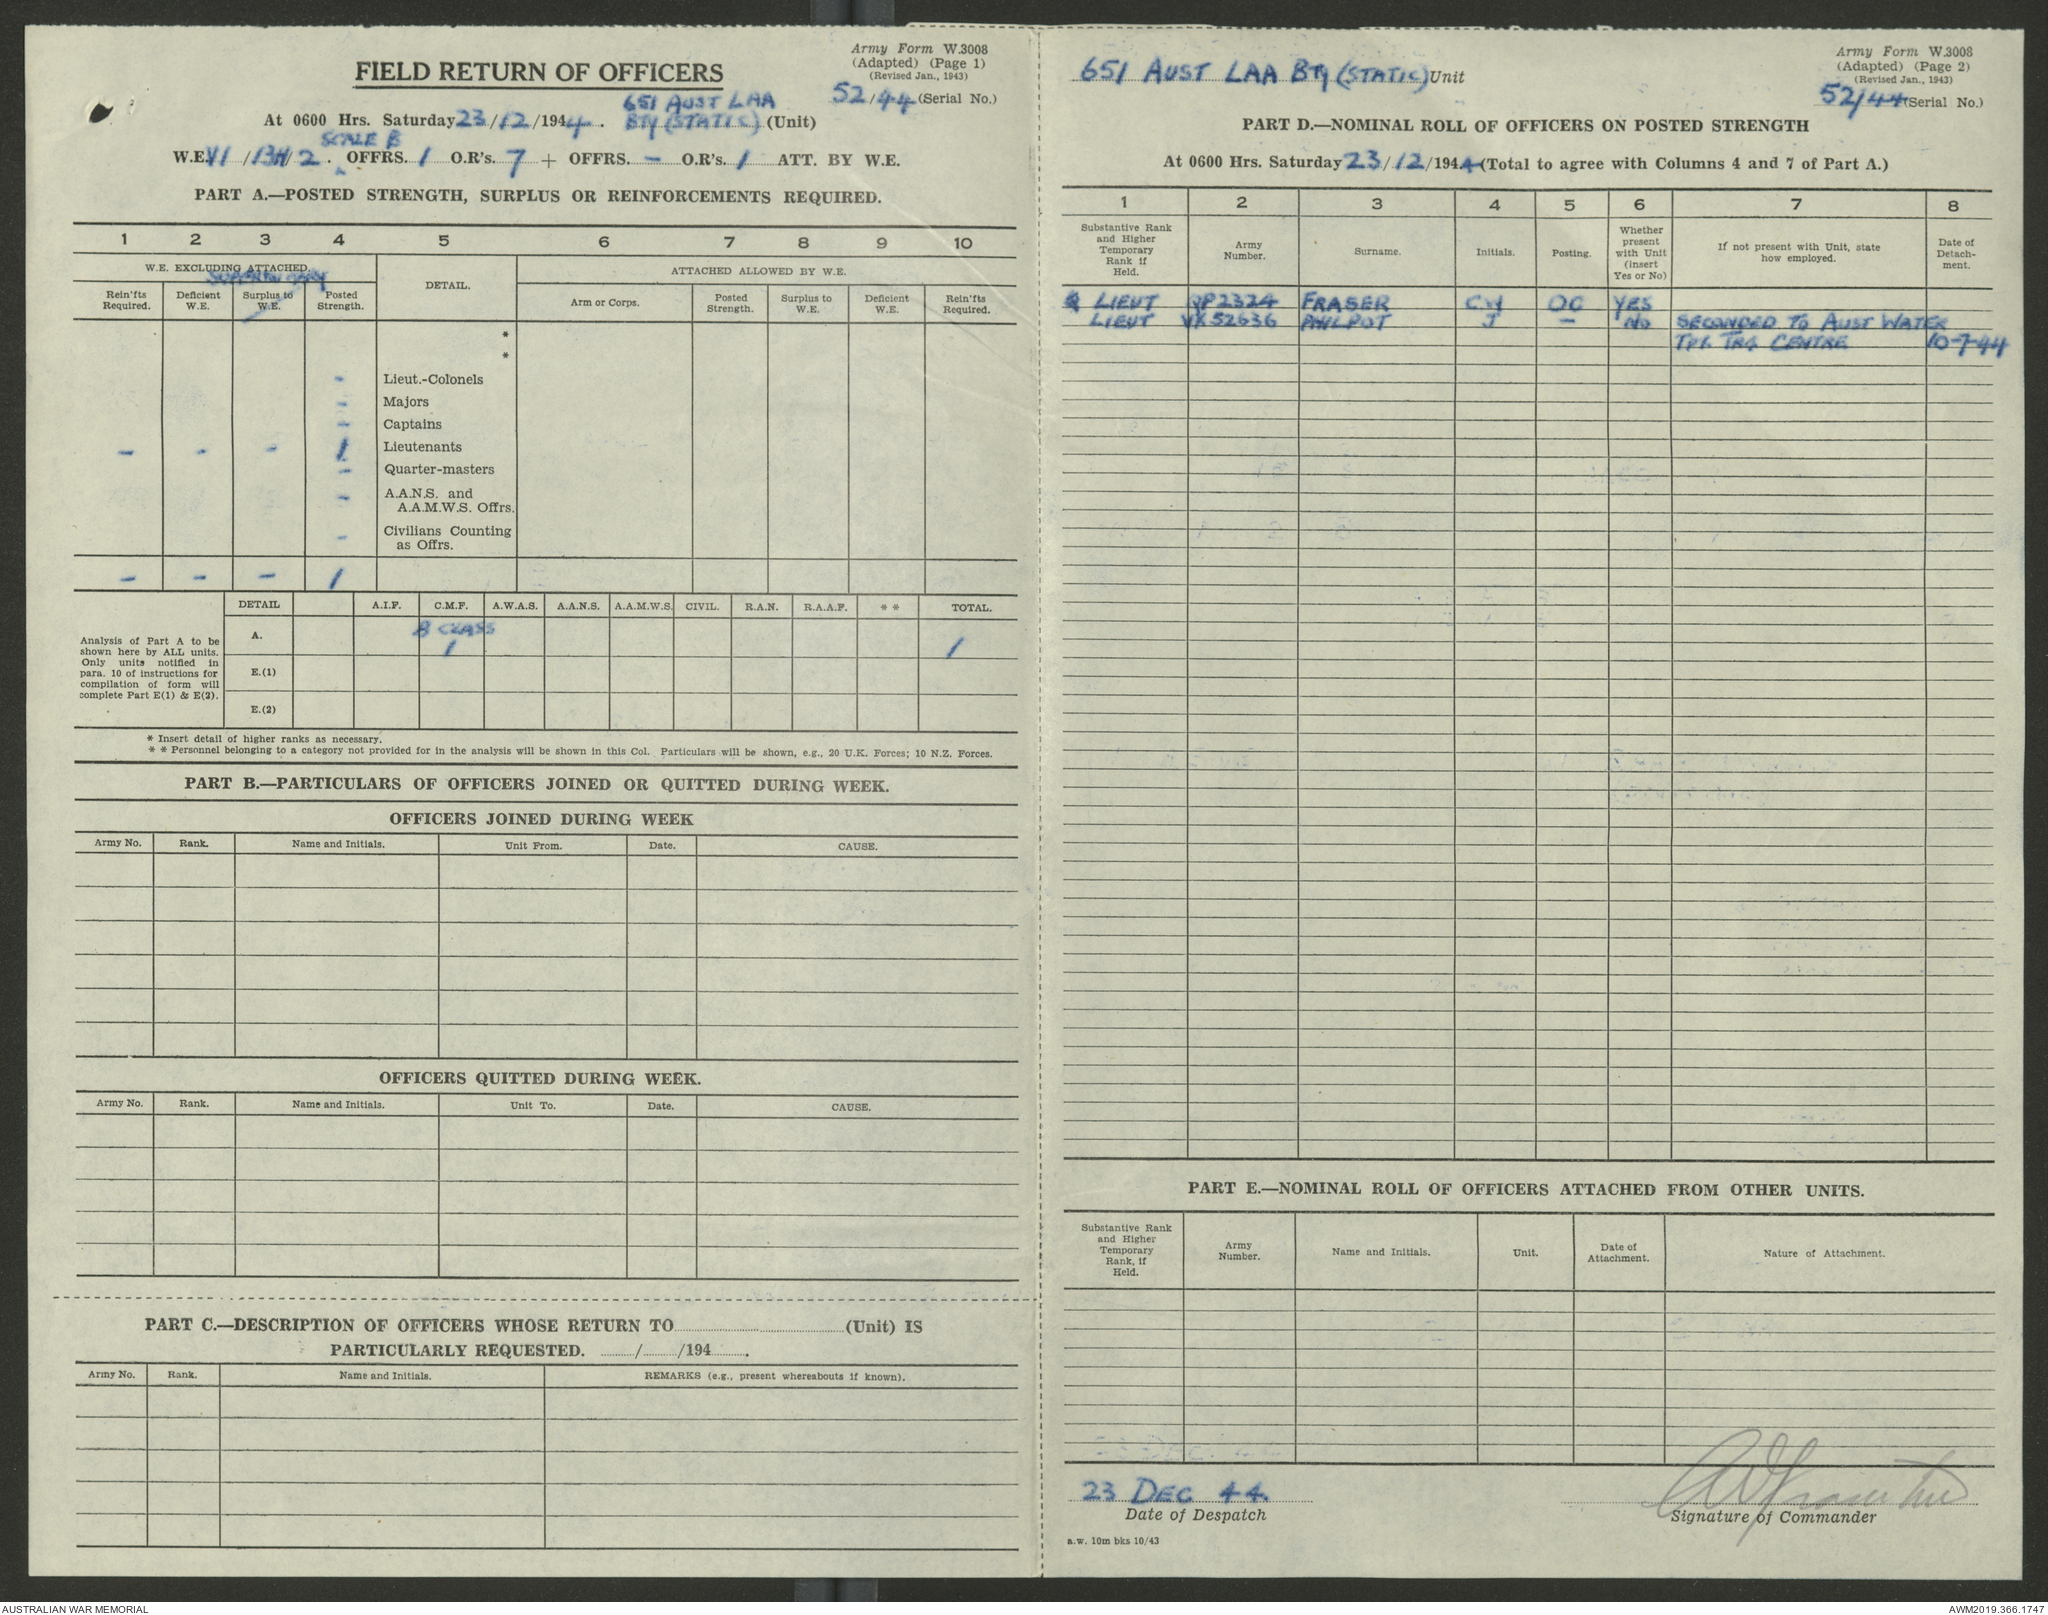 Army Form W.3008
(Adapted) (Page 1)
(Revised Jan., 1943)
FIELD RETURN OF OFFICERS
52/44 (Serial No.)
651 AUST LAA
At 0600 Hrs. Saturday 23/12/1944. BTY (STATIC) (Unit)
SCALE B
W.E. VI/13H/2. OFFRS. 1 O.R's. 7 + OFFRS. – O.R's. 1 ATT. BY W.E.
PART A.—POSTED STRENGTH, SURPLUS OR REINFORCEMENTS REQUIRED.
1 2 3 4 5 6 7 8 9 10
W.E. EXCLUDING ATTACHED. DETAIL. ATTACHED ALLOWED BY W.E.
Rein'fts Required. Deficient W.E. Surplus to W.E. Posted Strength. Arm or Corps. Posted Strength. Surplus to W.E. Deficient W.E. Rein'fts Required.
*
*
- Lieut.-Colonels
- Majors
- Captains
- - - 1 Lieutenants
- Quarter-masters
- A.A.N.S. and
A.A.M.W.S. Offrs.
- Civilians Counting
as Offrs.
- - - 1
DETAIL A.I.F. C.M.F. A.W.A.S. A.A.N.S. A.A.M.W.S. CIVIL. R.A.N. R.A.A.F. * * TOTAL.
Analysis of Part A to be
shown here by ALL units.
Only units notified in
para. 10 of instructions for
compilation of form will
complete Part E(1) & E(2).
A. B CLASS
1 1
E.(1)
E.(2)
* Insert detail of higher ranks as necessary.
* * Personnel belonging to a category not provided for in the analysis will be shown in this Col. Particulars will be shown, e.g., 20 U.K. Forces; 10 N.Z. Forces.
PART B.—PARTICULARS OF OFFICERS JOINED OR QUITTED DURING WEEK.
OFFICERS JOINED DURING WEEK
Army No. Rank. Name and Initials. Unit From. Date. CAUSE.
OFFICERS QUITTED DURING WEEK.
Army No. Rank. Name and Initials. Unit To. Date. CAUSE.
PART C.—DESCRIPTION OF OFFICERS WHOSE RETURN TO (Unit) IS
PARTICULARLY REQUESTED. / /194 .
Army No. Rank. Name and Initials. REMARKS (e.g., present whereabouts if known).
Army Form W.3008
(Adapted) (Page 2)
(Revised Jan., 1943)
651 AUST LAA BTY (STATIC) Unit
52/44 (Serial No.)
PART D.—NOMINAL ROLL OF OFFICERS ON POSTED STRENGTH
At 0600 Hrs. Saturday 23/12/1944 (Total to agree with Columns 4 and 7 of Part A.)
1 2 3 4 5 6 7 8
Substantive Rank and Higher Temporary Rank if Held. Army Number. Surname. Initials. Posting. Whether present with Unit (insert Yes or No) If not present with Unit, state how employed. Date of Detach-ment.
LIEUT QP2324 FRASER OC YES
LIEUT VX52636 PHILPOT J – NO SECONDED TO AUST WATER
TPT TRG CENTRE 10-7-44
PART E.—NOMINAL ROLL OF OFFICERS ATTACHED FROM OTHER UNITS.
Substantive Rank and Higher Temporary Rank, if Held. Army Number. Name and Initials. Unit. Date of Attachment. Nature of Attachment.
23 DEC 44.
Date of Despatch
Signature of Commander
a.w. 10m bks 10/43
AUSTRALIAN WAR MEMORIAL
AWM2019.366.1747